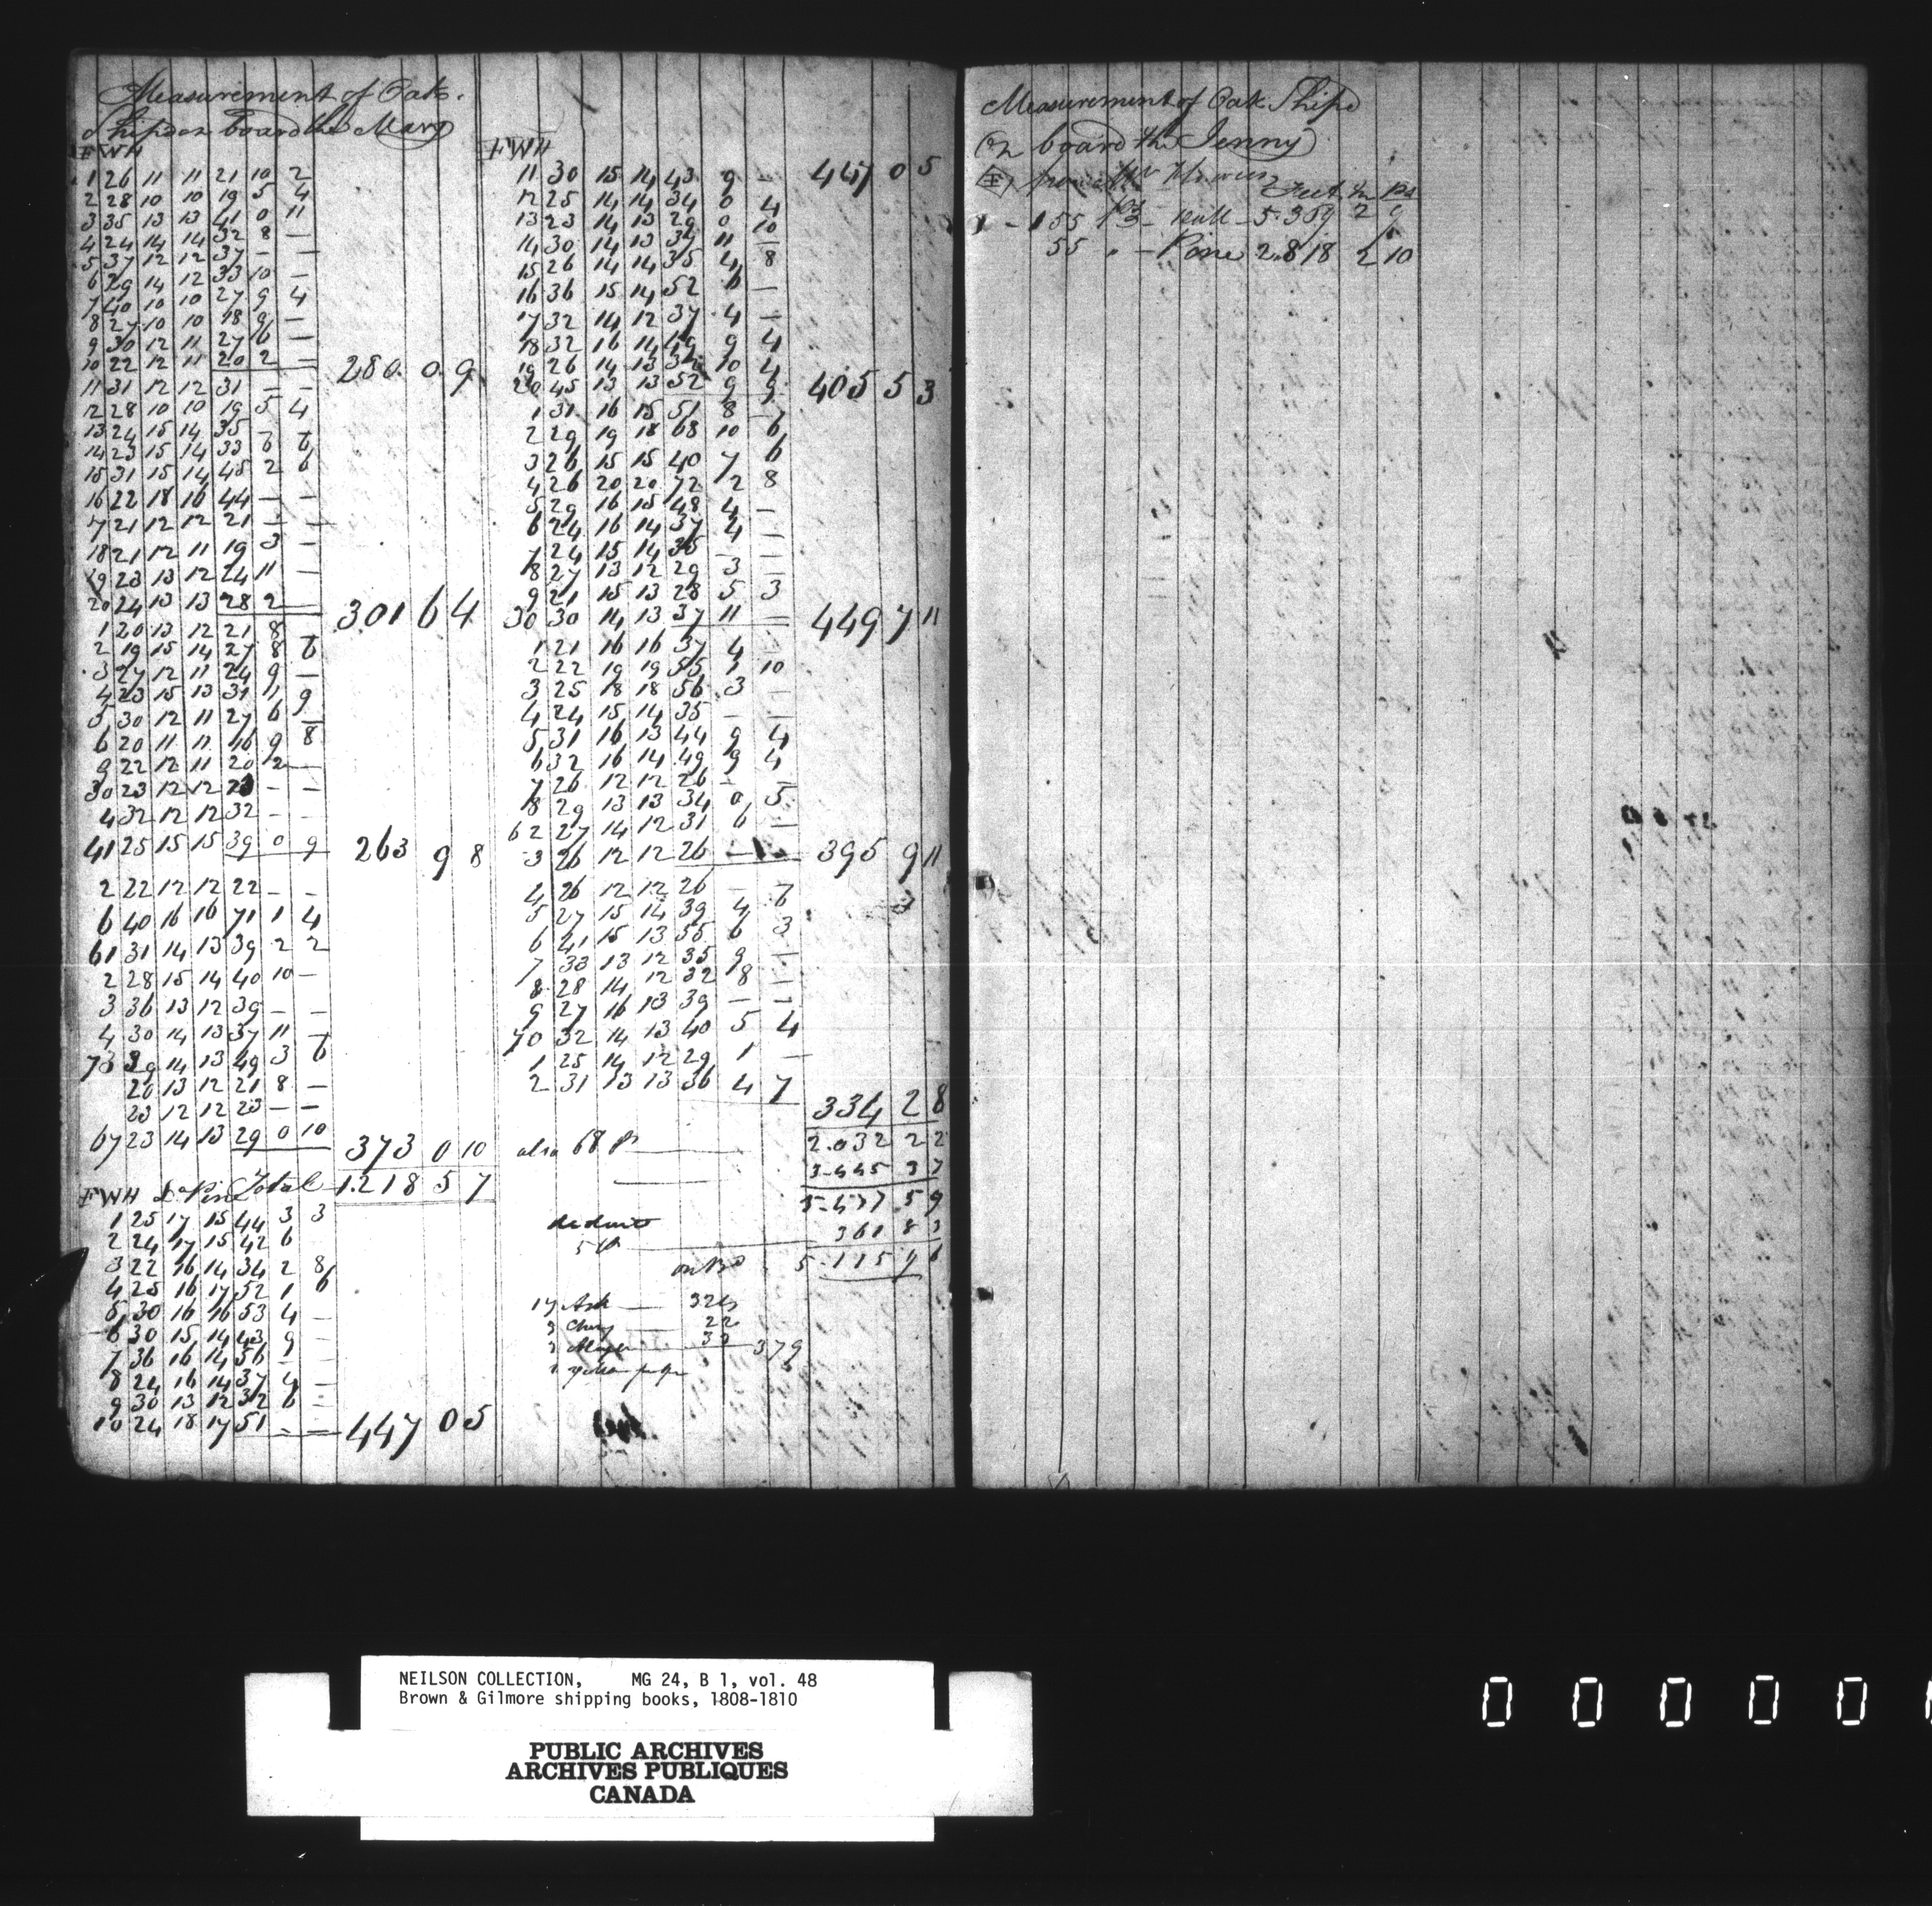 Measurement of Oak
Ship on board the Mary
FWH
1 26 11 11 21 10 2
2 28 10 10 19 5 4
3 35 13 13 41 0 11
4 24 14 14 32 8 —
5 37 12 12 37 — —
6 29 14 12 33 10 —
7 40 10 10 27 9 4
8 27 10 10 18 9 —
9 30 12 11 27 6 —
10 22 12 11 20 2 — 280 0 9
11 31 12 12 31 — —
12 28 10 10 19 5 4
13 24 15 14 35 — —
14 23 15 14 33 6 6
15 31 15 14 45 2 6
16 22 18 16 44 — —
7 21 12 12 21 — —
18 21 12 11 19 3 —
19 23 13 12 24 11 —
20 24 13 13 28 2 — 301 6 4
1 20 13 12 21 8
2 19 15 14 27 8 6
3 27 12 11 24 9 —
4 23 15 13 31 1 9
5 30 12 11 27 6 —
6 20 11 11 16 9 8
9 22 12 11 20 2 —
30 23 12 12 23 — —
4 32 12 12 32 — —
41 25 15 15 39 0 9 263 9 8
2 22 12 12 22 — —
6 40 16 16 71 1 4
61 31 14 13 39 2 2
2 28 15 14 40 10 —
3 36 13 12 39 — —
4 30 14 13 37 11 —
73 39 14 13 49 3 6
20 13 12 21 8 —
23 12 12 23 — —
67 23 14 13 29 0 10 373 0 10
FWH Do Pine Total 1.218 5 7
1 25 17 15 44 3 3
2 24 17 15 42 6
3 22 16 14 34 2 8
4 25 16 17 52 1 6
5 30 16 16 53 4 —
6 30 15 14 43 9 —
7 36 16 14 56 — —
8 24 16 14 37 4 —
9 30 13 12 32 6 —
10 24 18 17 51 — — 447 0 5
FWH 447 0 5
11 30 15 14 43 9 —
12 25 14 14 34 0 4
13 23 14 13 29 0 10
14 30 14 13 37 11 —
15 26 14 14 35 4 8
16 36 15 14 52 6 —
17 32 14 12 37 4 —
18 32 16 14 49 9 4
19 26 14 13 32 10 4
20 45 13 13 52 9 9 405 5 3
1 31 16 15 51 8 —
2 29 19 18 68 10 6
3 26 15 15 40 7 6
4 26 20 20 72 2 8
5 29 16 15 48 4 —
6 24 16 14 37 4 —
7 24 15 14 35 — —
8 27 13 12 29 3 —
9 21 15 13 28 5 3
30 30 14 13 37 11 — 449 7 11
1 21 16 16 37 4 —
2 22 19 19 55 1 10
3 25 18 18 56 3 —
4 24 15 14 35 — —
5 31 16 13 44 9 4
6 32 16 14 49 9 4
7 26 12 12 26 — —
8 29 13 13 34 0 5
62 27 14 12 31 6 —
3 26 12 12 26 — 395 9 11
4 26 12 12 26 — 3
5 27 15 14 39 4 6
6 41 15 13 55 6 3
7 33 13 12 35 9 —
8 28 14 12 32 8 —
9 27 16 13 39 — —
70 32 14 13 40 5 4
1 25 14 12 29 1 —
2 31 13 13 36 4 7
334 2 8
also 68 Ps — 2.032 2 2
3.445 3 7
5.477 5 9
deduct
361 8 3
on Bd 5.115 9 6
17 Ash — 324
3 Chery — 22
33
379
Measurement of Oak Ship
On board the Jenny
Feet In Ps
155 Ps 5.359 2 9
55 " — Pine 2.818 2 10
NEILSON COLLECTION, MG 24, B 1, vol. 48
Brown & Gilmore shipping books, 1808-1810
PUBLIC ARCHIVES
ARCHIVES PUBLIQUES
CANADA
0 0 0 0 0